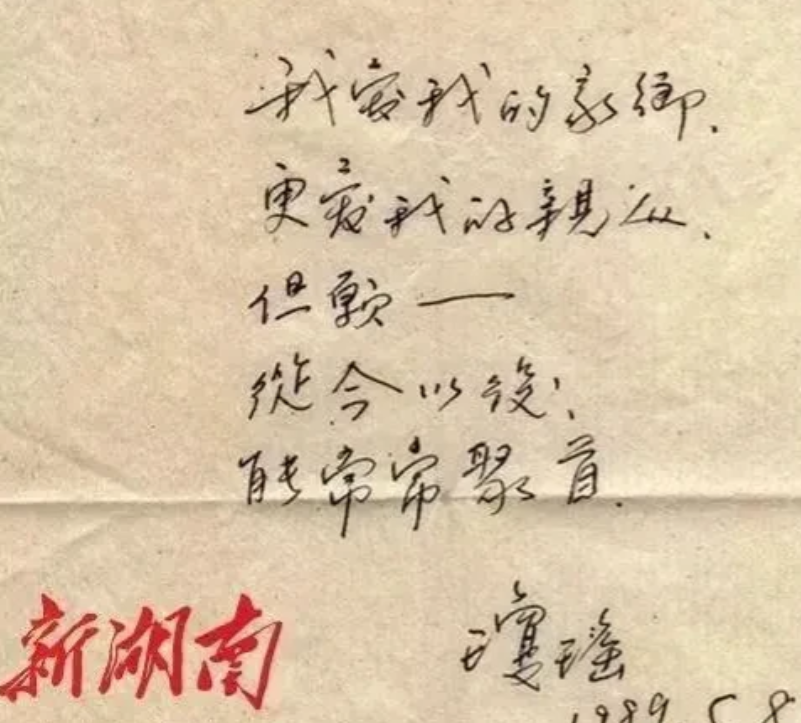 我愛我的家鄉.
更愛我的親人.
但願——
從今以後,
能常常聚首.
瓊瑤
1989.5.8
新湖南